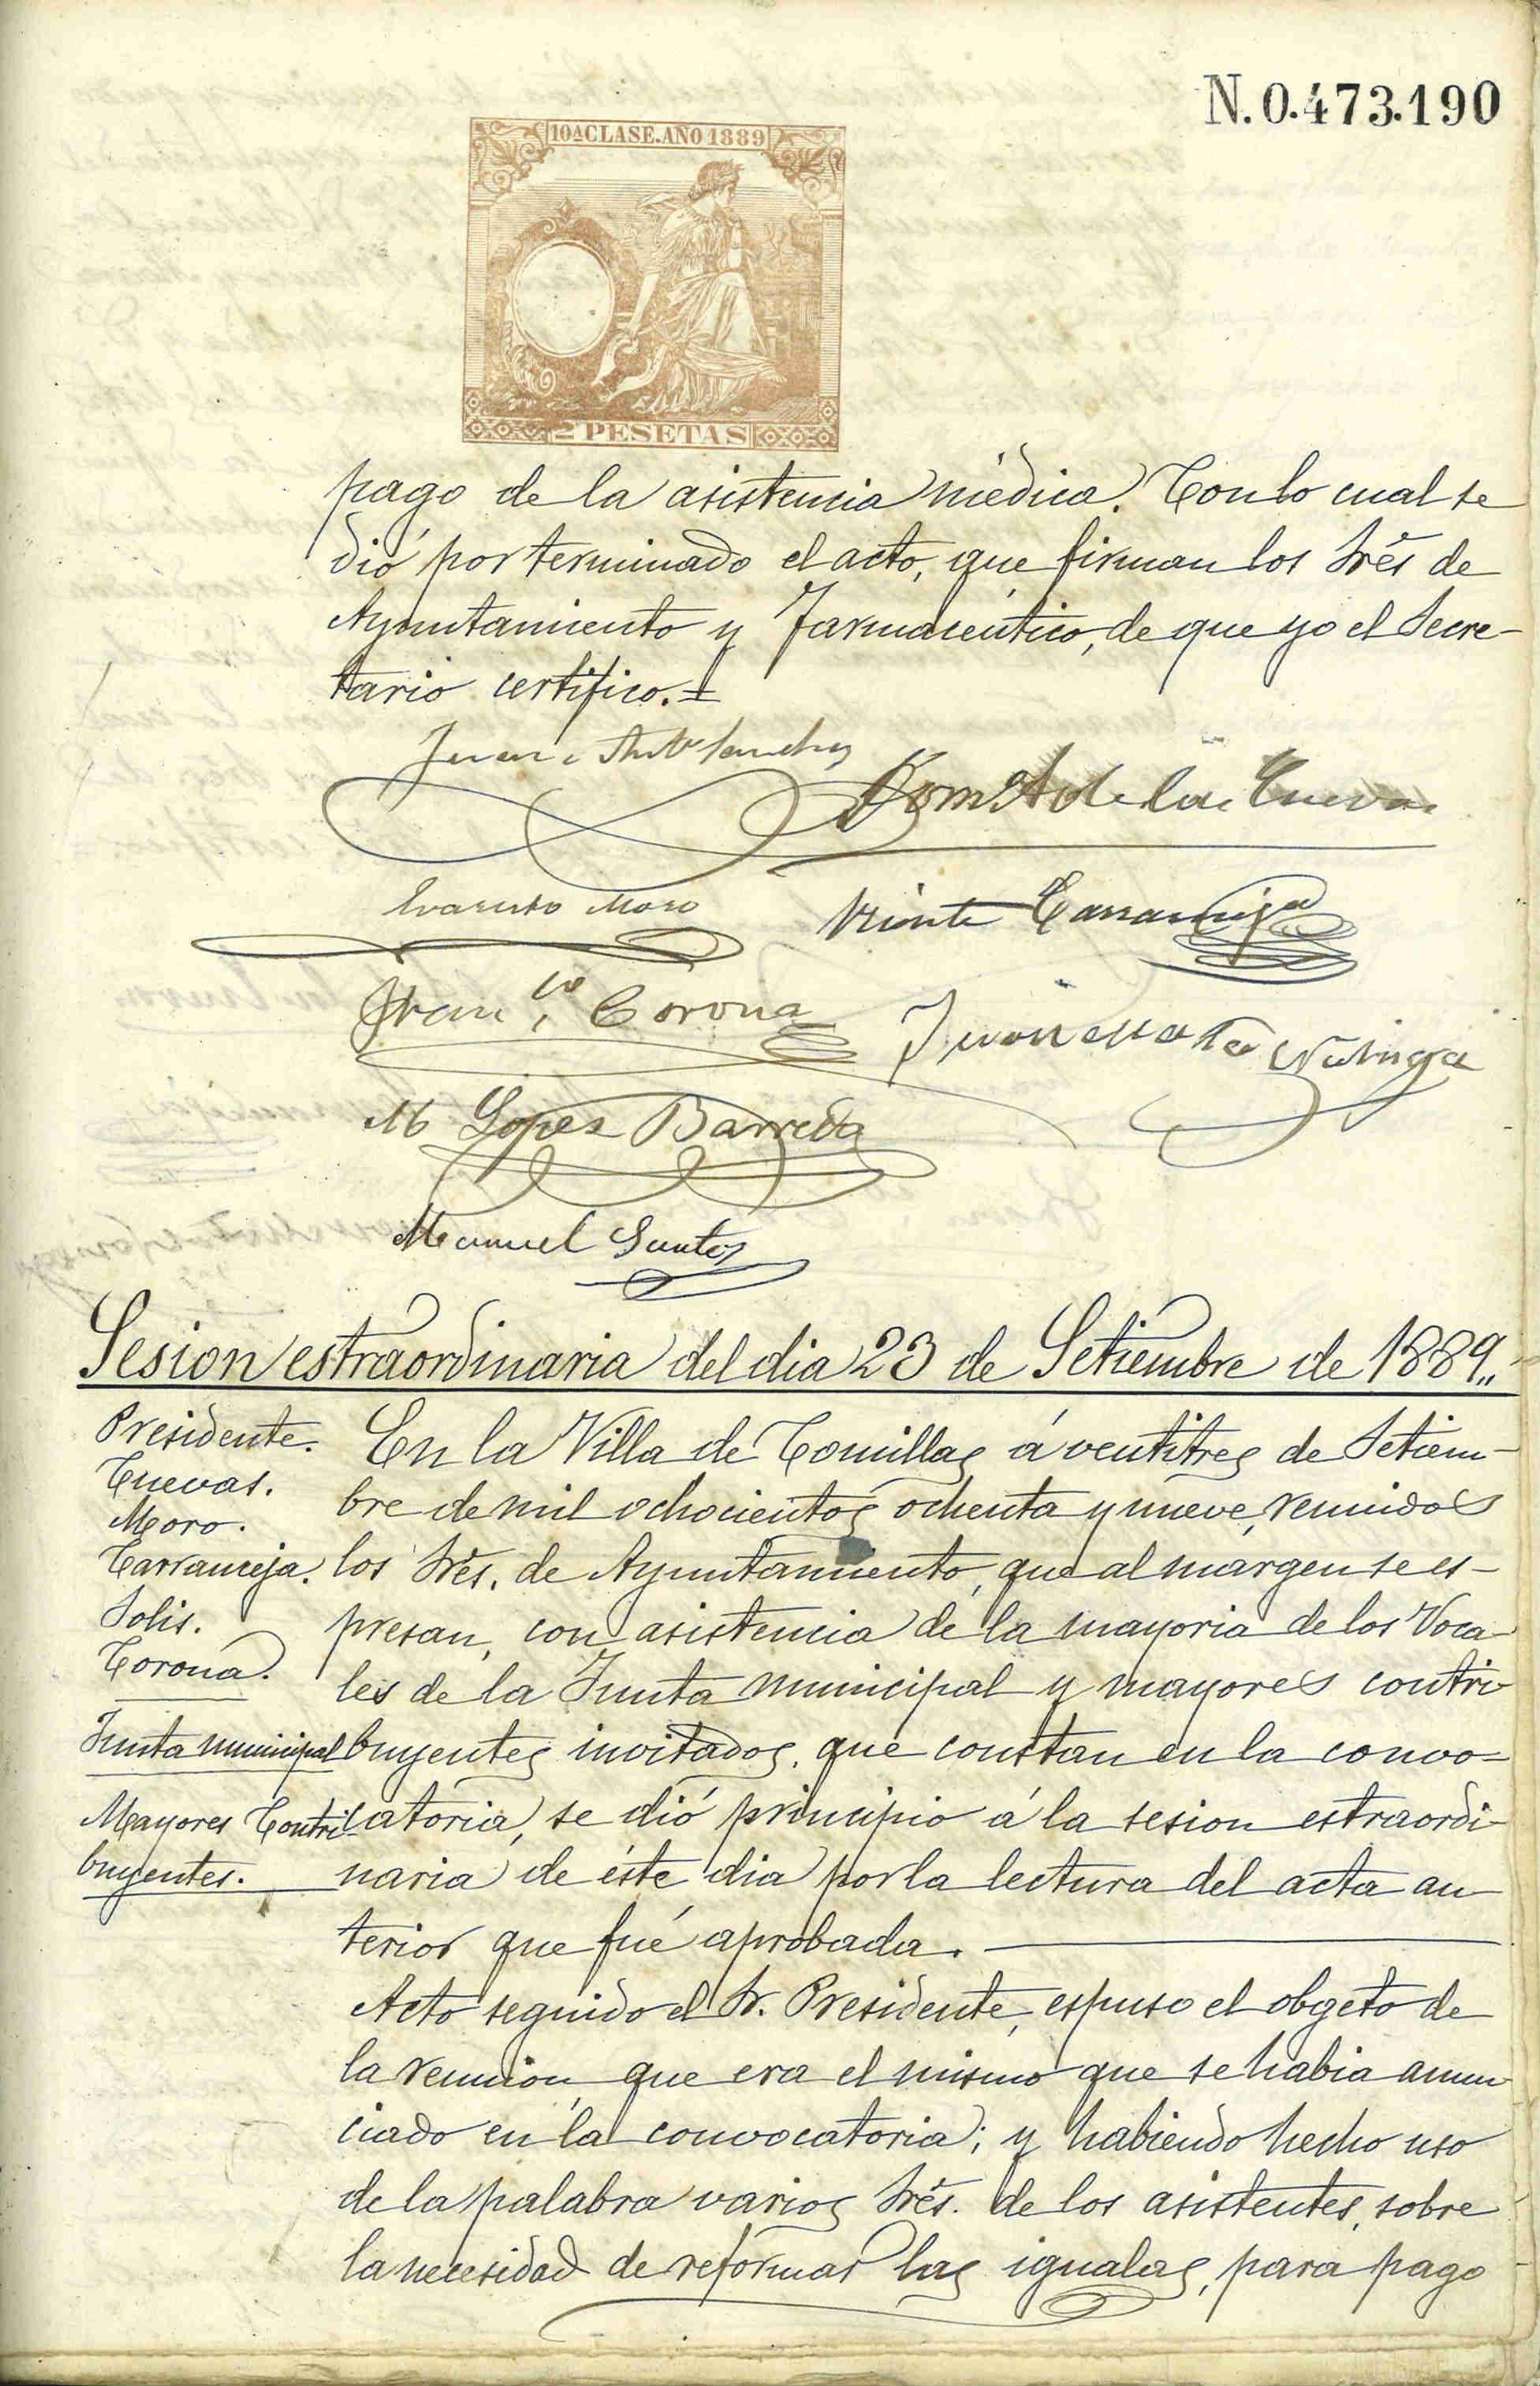 N. 0.473.190
10ª CLASE. AÑO 1889
2 PESETAS
pago de la asistencia médica. Con lo cual se
dió por terminado el acto, que firman los Srēs de
Ayuntamiento y Farmaséutico, de que yo el Secre-
tario certifico.=
Juan Antº Sanchez
Domº A de las Cuevas
Evaristo Moro
Visinte Carranceja
Franco. Corona
Juan
M Lopez Barreda
Manuel Santos
Sesion estraordinaria del dia 23 de Setiembre de 1889,,
Presidente.
Cuevas.
Moro.
Carranceja.
Solis.
Corona.
Junta municipal
Mayores Contri-
buyentes.
En la Villa de Comillas á ventitres de Setiem-
bre de mil ochocientos ochenta y nueve, reunidos
los Srēs. de Ayuntamiento, que al margen se es-
presan, con asistencia de la mayoria de los Voca-
les de la Junta municipal y mayores contri-
buyentes invitados, que constan en la convo-
catoria, se dió principio á la sesion estraordi-
naria de éste dia por la lectura del acta an-
terior que fué aprobada.
Acto seguido el Sr. Presidente, espuso el obgeto de
la reunion, que era el mismo que se habia anun-
ciado en la convocatoria; y habiendo hecho uso
de la palabra varios Srēs. de los asistentes, sobre
la necesidad de reformar las igualas, para pago